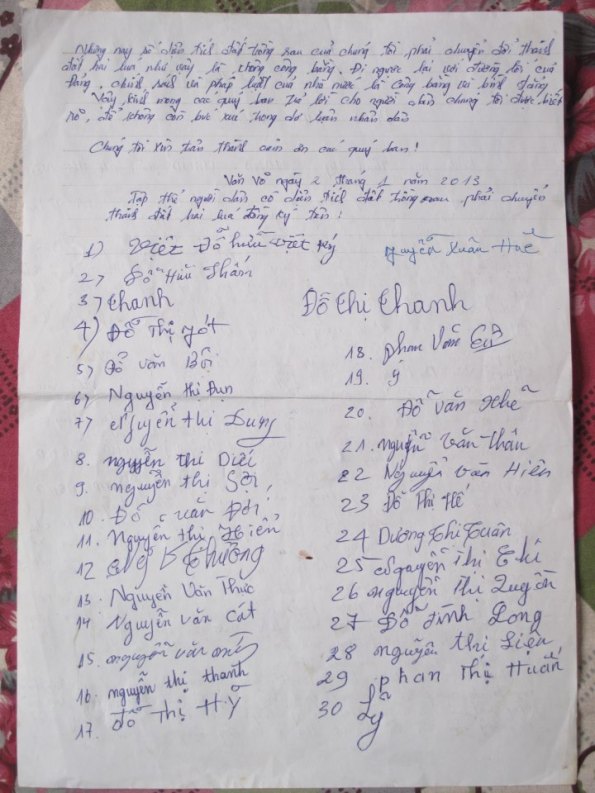 Những nay số diện tích đất trồng rau của chúng tôi phải chuyển đổi thành
đất hai lúa như vậy là không công bằng. Đi ngược lại với đường lối của
Đảng, chính sách và pháp luật của nhà nước là công bằng và bình đẳng
Vậy kính mong các quý ban trả lời cho người dân chúng tôi được biết
rõ, để không còn bức xúc trong dư luận nhân dân
Chúng tôi xin chân thành cảm ơn các quý ban!
Văn Võ ngày 2 tháng 1 năm 2013
Tập thể người dân có diện tích đất trồng rau phải chuyển
thành đất hai lúa đăng ký tên!
1) Việt Đỗ hữu Việt ký
Nguyễn Xuân Huê
2) Đỗ Hữu Thấm
3) thanh Đỗ thị thanh
4) Đỗ Thị Tót
5) Đỗ văn Bội
6) Nguyễn thị Đun
7) Nguyễn thi Dung
8. nguyễn thi Diến
9. nguyễn thi Sợi
10. Đỗ văn Đời
11. Nguyễn thị Hiển
12
13. Nguyễn Văn Thức
14 Nguyễn văn cát
15. nguyễn văn
16. nguyễn thị thanh
17. đỗ Thị Hỹ
18. phạm Văn
19. y
20. Đỗ văn Khê
21. nguyễn Văn thân
22 Nguyễn Văn Hiên
23 Đỗ Thị Hế
24 Dương Thi Tuân
25 Nguyễn Thị Chí
26 nguyễn Thị Quyên
27 Đỗ Đình Long
28 nguyễn thi Liên
29 phan Thị Huấn
30 Lỹ